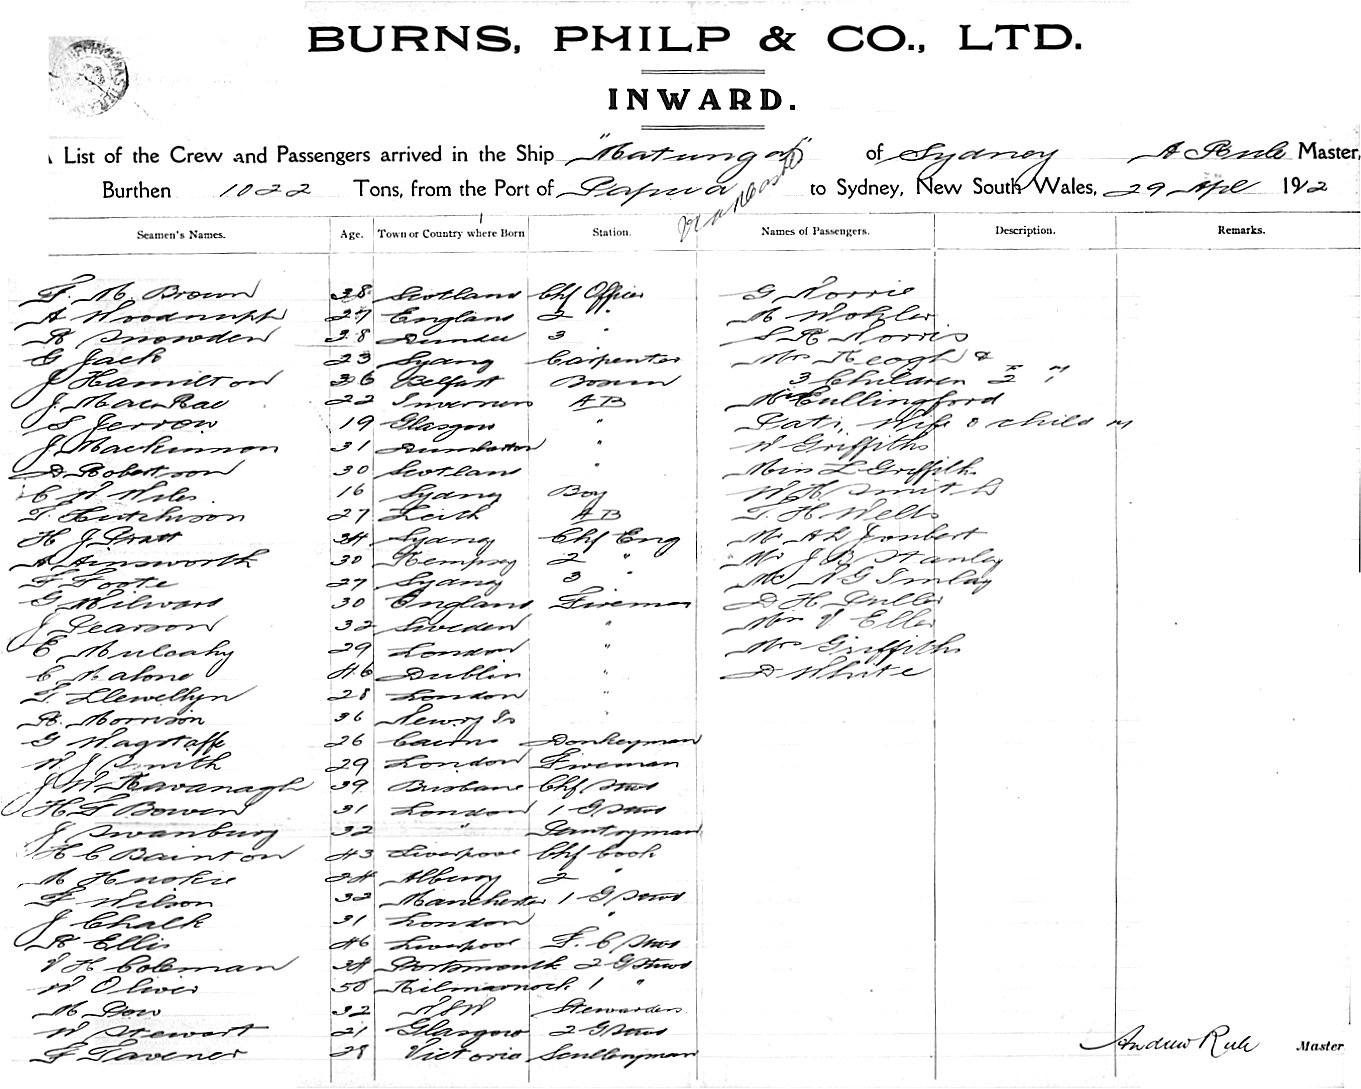 BURNS, PHILP & CO., LTD.
INWARD.
List of the Crew and Passengers arrived in the Ship "Matunga" of Sydney A Rule Master,
Burthen 1022 Tons, from the Port of Papua to Sydney, New South Wales, 29 Apl 1912
Seamen's Names. Age. Town or Country where Born Station. Names of Passengers. Description. Remarks.
F. M. Brown 38 Scotland Chf Officer G Norrie
A 27 England 2 " M Wohler
R Snowden 28 Dundee 3 " S R Norris
G Jack 23 Sydney Carpenter Mrs Keogh &
J Hamilton 36 Belfast Bosun 3 Children 2 "
J. MacRae 22 Inverness AB Cullingford
S Jerrow 19 Glasgow " Pats, wife & child
J Mackinnon 31 Dumbarton " W Griffiths
D Robertson 30 Scotland " Miss L Griffiths
C W Wiles 16 Sydney Boy W H Smith
T. Hutchison 27 Leith AB T. H. Wells
H J Pratt 34 Sydney Chf Eng Mr A L Joubert
A Ainsworth 30 Kempsey 2 " Mr J B Stanley
F Foote 27 Sydney 3 " Mr N G Imlay
G Milward 30 England Fireman D H Fuller
J Pearson 32 Sweden " Mrs J Ellis
E Mulcahy 29 London " Mrs Griffiths
C Malone 46 Dublin " D White
T. Llewellyn 28 London "
R. Morrison 36 Newry "
G Wagstaffe 26 Cairns Donkeyman
W J Smith 29 London Fireman
J W Kavanagh 39 Brisbane Chf Stwd
H F Bowen 31 London 1 G Stwd
J Swanbury 32 " Pantryman
H C Bainton 43 Liverpool Chf Cook
M Huskie 24 Albury 2 "
F Wilson 32 Manchester 1 G Stwd
J Chalk 31 London "
R Ellis 46 Liverpool F. C Stwd
V H Coleman 34 Portsmouth 2 G Stwd
W Oliver 50 Kilmarnock 1 "
M Dow 32 NSW Stewardess
W Stewart 21 Glasgow 2 G Stwd
F Tavener 28 Victoria Sculleryman
Andrew Rule Master